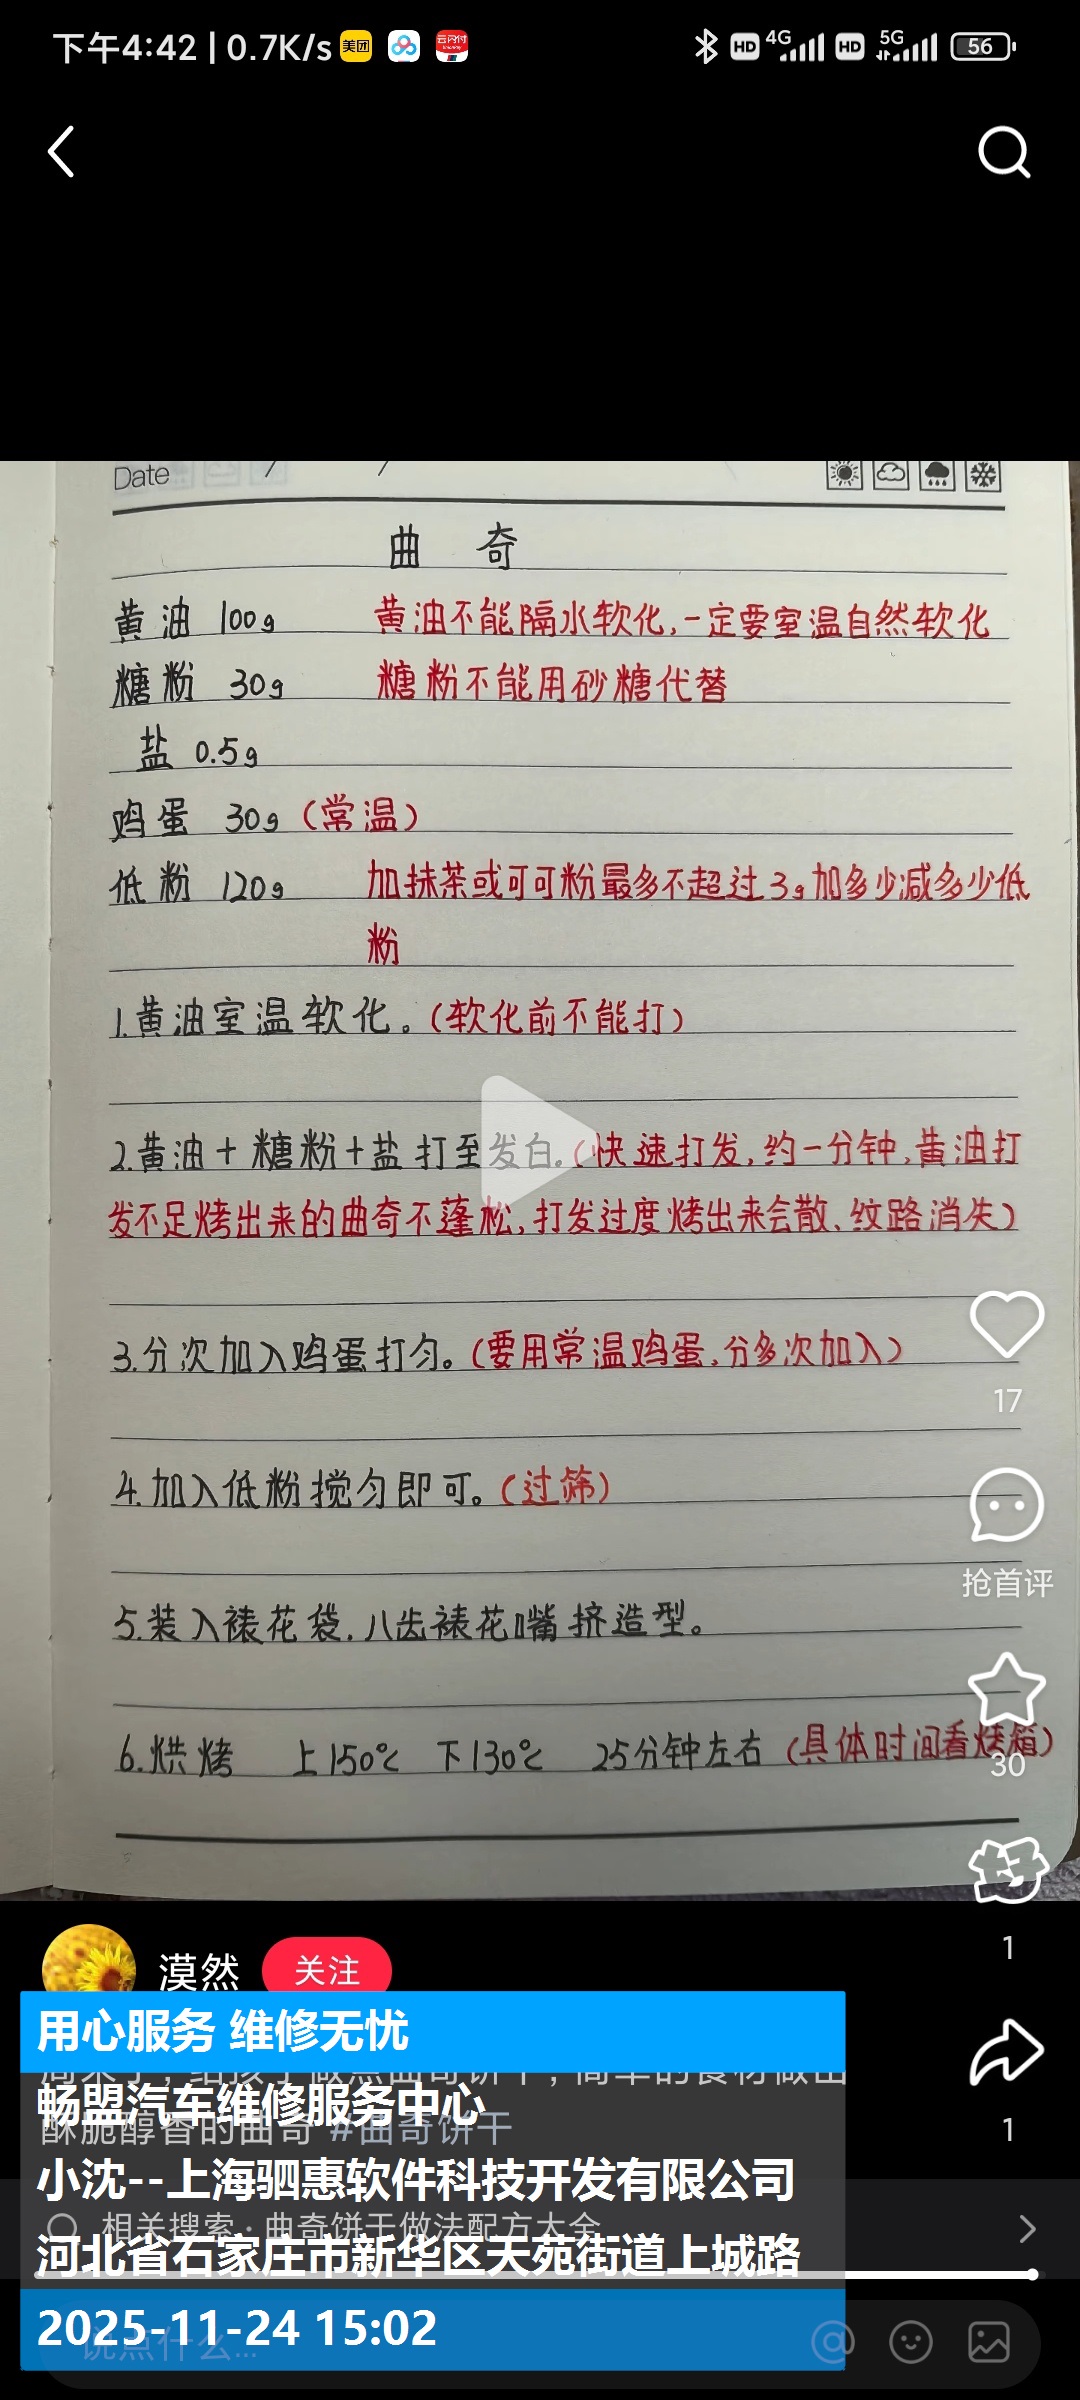 下午4:42 | 0.7K/s 美团 云闪付 HD 4G HD 5G 56
Date / /
曲 奇
黄油 100g 黄油不能隔水软化,一定要室温自然软化
糖粉 30g 糖粉不能用砂糖代替
盐 0.5g
鸡蛋 30g (常温)
低粉 120g 加抹茶或可可粉最多不超过3g加多少减多少低
粉
1.黄油室温软化。(软化前不能打)
2.黄油+糖粉+盐打至发白。(快速打发,约一分钟,黄油打
发不足烤出来的曲奇不蓬松,打发过度烤出来会散、纹路消失)
3.分次加入鸡蛋打匀。(要用常温鸡蛋,分多次加入)
4.加入低粉搅匀即可。(过筛)
5.装入裱花袋,八齿裱花嘴挤造型。
6.烘烤 上150℃ 下130℃ 25分钟左右 (具体时间看烤箱)
17
抢首评
30
1
1
漠然 关注
用心服务 维修无忧
畅盟汽车维修服务中心
酥脆醇香的曲奇 #曲奇饼干
小沈--上海驷惠软件科技开发有限公司
相关搜索·曲奇饼干做法配方大全
河北省石家庄市新华区天苑街道上城路
2025-11-24 15:02
说点什么...